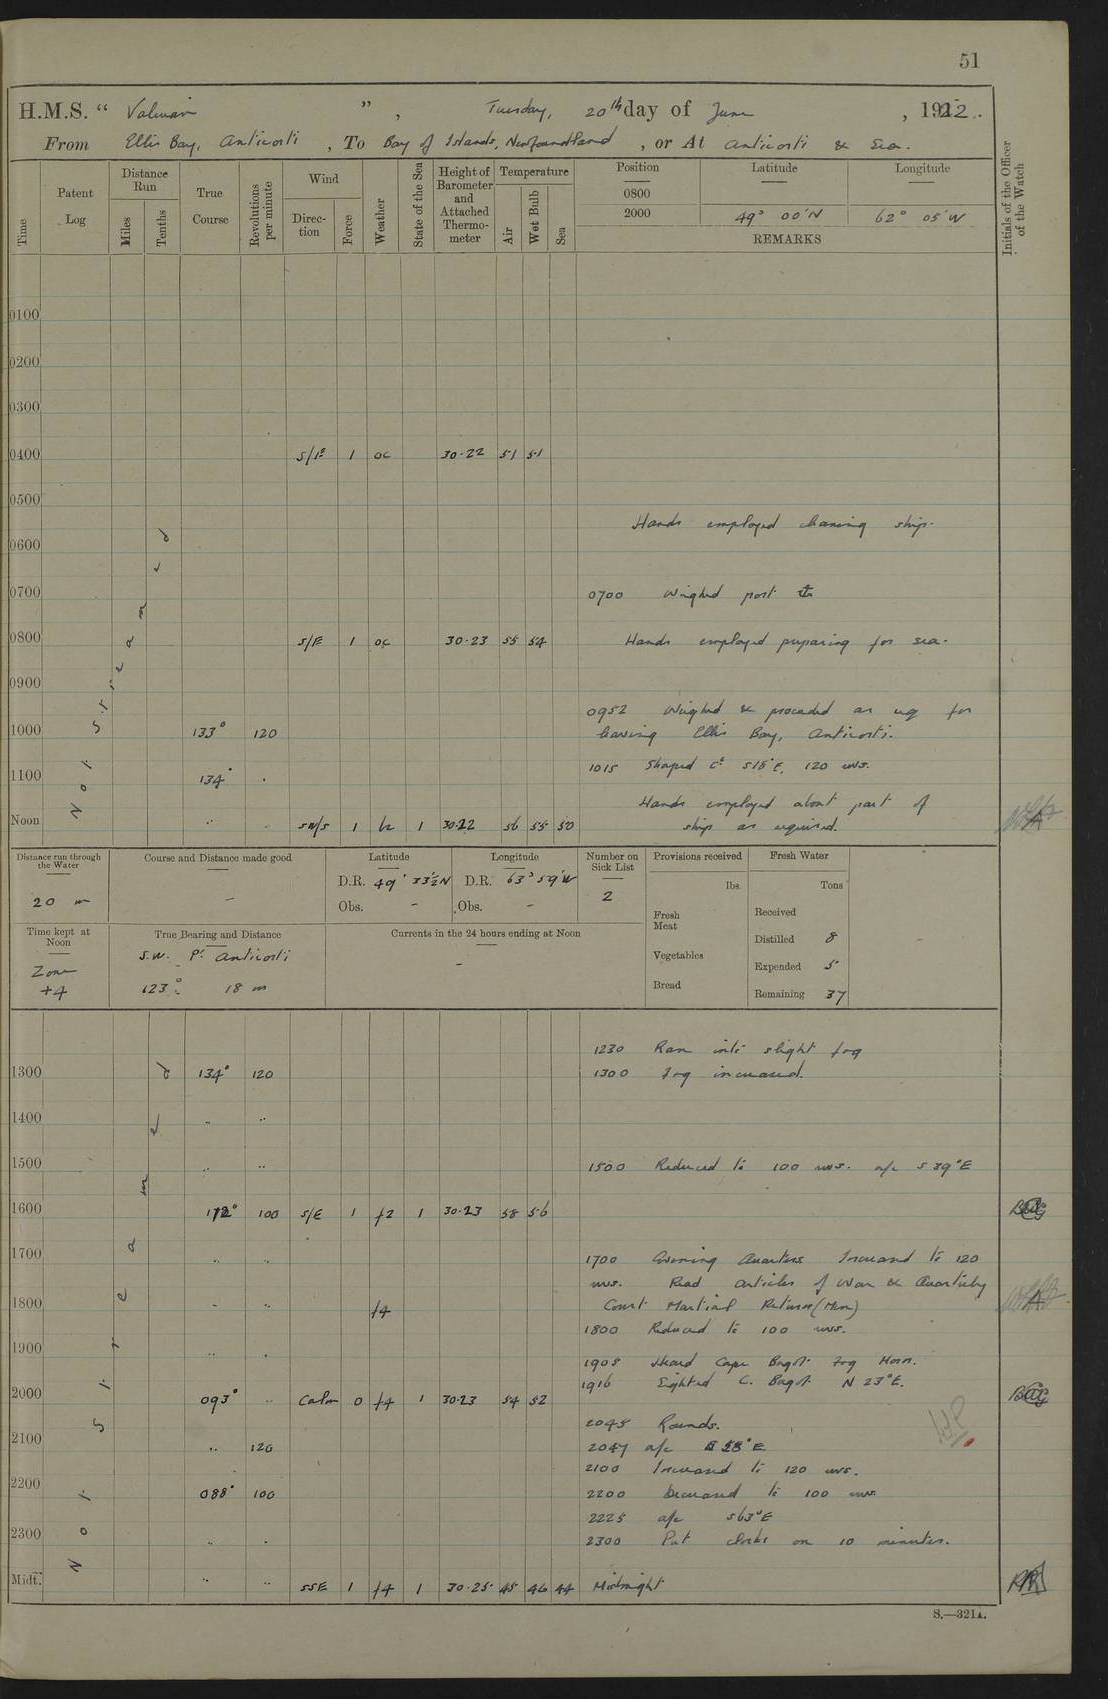 51
H.M.S. “ Valerian ”, Tuesday, 20th day of June, 1922.
From Ellis Bay, Anticosti, To Bay of Islands, Newfoundland, or At Anticosti & Sea.
Time
Patent Log
Distance Run
Miles
Tenths
True Course
Revolutions per minute
Wind
Direction
Force
Weather
State of the Sea
Height of Barometer and Attached Thermometer
Temperature
Air
Wet Bulb
Sea
Position
Latitude
Longitude
0800
2000 49° 00'N 62° 05'W
REMARKS
Initials of the Officer of the Watch
Not Streamed
0100
0200
0300
0400 S/E 1 oc 30·22 51 51
0500
Hands employed cleaning ship.
0600
0700 0700 Weighed port ⚓
0800 S/E 1 oc 30·23 55 54 Hands employed preparing for sea.
0900
0952 Weighed & proceeded as req for
1000 133° 120 leaving Ellis Bay, Anticosti.
1015 Shaped Cº S15°E, 120 revs.
1100 134° "
Hands employed about part of
Noon " " SW/S 1 bz 1 30·22 56 55 50 ship as required.
Distance run through the Water
20 m
Course and Distance made good
-
Latitude
D.R. 49° 33½'N
Obs. -
Longitude
D.R. 63° 59'W
Obs. -
Number on Sick List
2
Provisions received
lbs.
Fresh Meat
Vegetables
Bread
Fresh Water
Tons
Received
Distilled 8
Expended 5
Remaining 37
Time kept at Noon
Zone +4
True Bearing and Distance
S.W. Pt Anticosti
123° 18 m
Currents in the 24 hours ending at Noon
-
Not Streamed
1230 Ran into slight fog
1300 134° 120 1300 Fog increased.
1400 " "
1500 " " 1500 Reduced to 100 revs. a/c S 39°E
1600 112° 100 S/E 1 f2 1 30·23 58 56
1700 " " 1700 Evening Quarters Increased to 120
revs. Read Articles of War & Quarterly
1800 " " f4 Court Martial Returns (Men)
1800 Reduced to 100 revs.
1900 " "
1908 Heard Cape Bagot Fog Horn.
1916 Sighted C. Bagot N 23°E.
2000 093° " Calm 0 f4 1 30·23 54 52
2045 Rounds.
2100 " 120 2047 a/c S 58°E
2100 Increased to 120 revs.
2200 088° 100 2200 Decreased to 100 revs
2225 a/c S63°E
2300 " " 2300 Put clocks on 10 minutes.
Midt. " " SSE 1 f4 1 30·25 45 46 44 Midnight
S.—321A.